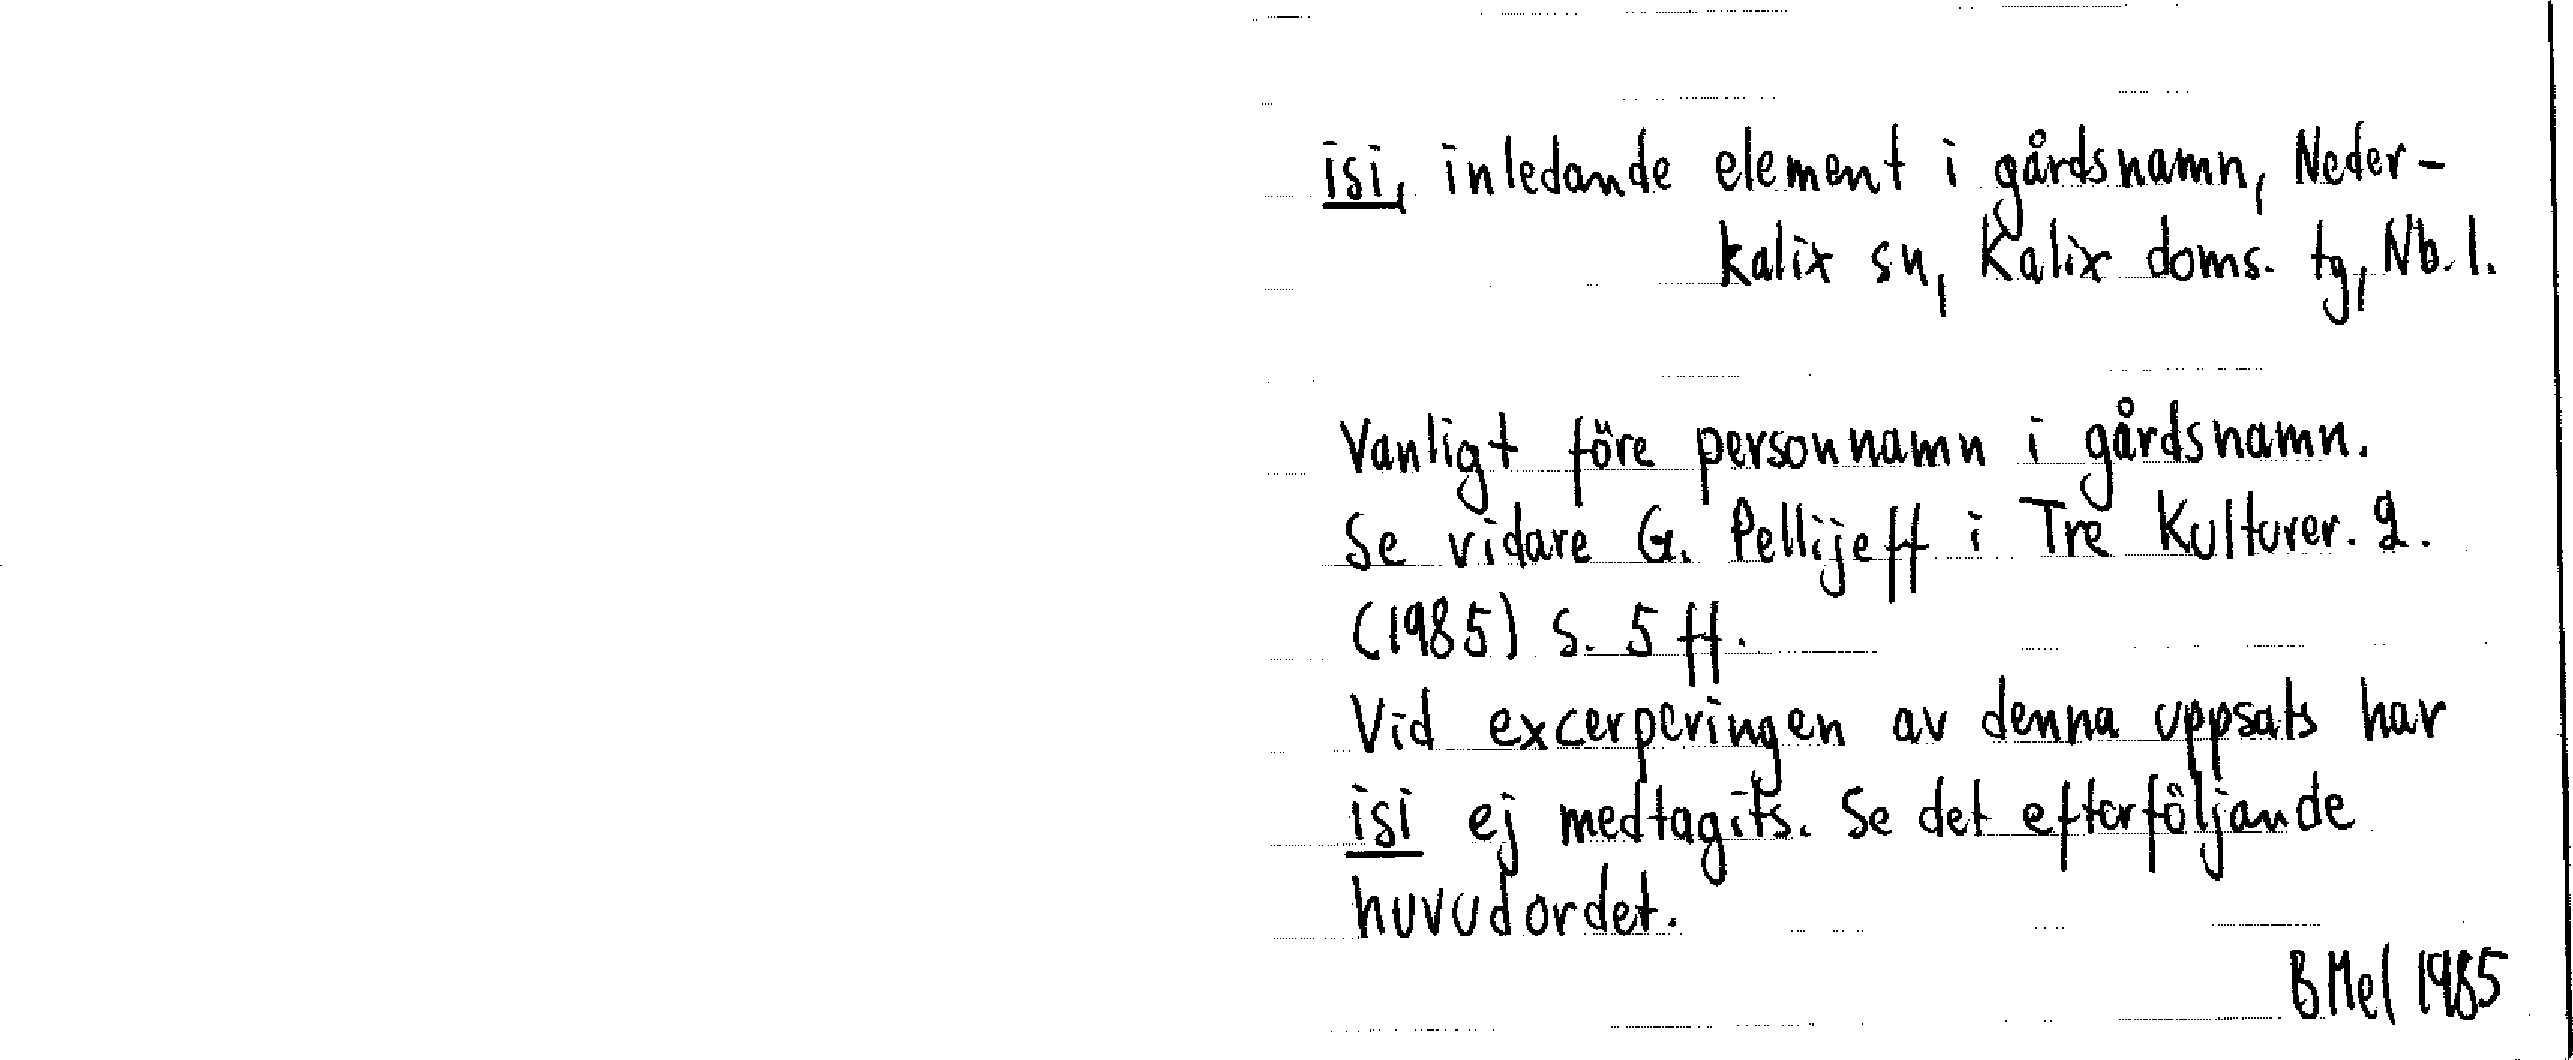 isi, inledande element i gårdsnamn, Neder-
kalix sn, Kalix doms. tg, Nb. l.
Vanligt före personnamn i gårdsnamn.
Se vidare G. Pellijeff i Tre Kulturer. 2.
(1985) s. 5 ff.
Vid excerperingen av denna uppsats har
isi ej medtagits. Se det efterföljande
huvudordet.
BMel 1985